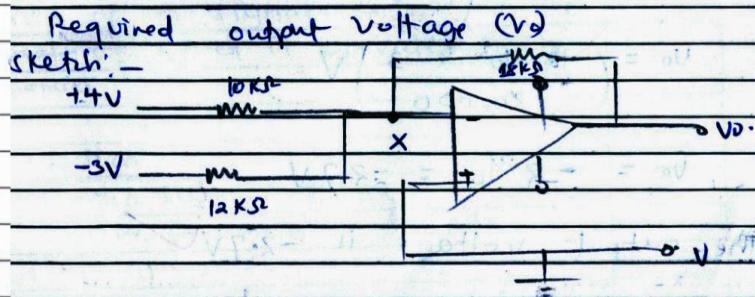 Required output Voltage (Vo)
Sketch: -
+4V 10KΩ
X - Vo.
-3V +
12KΩ
V